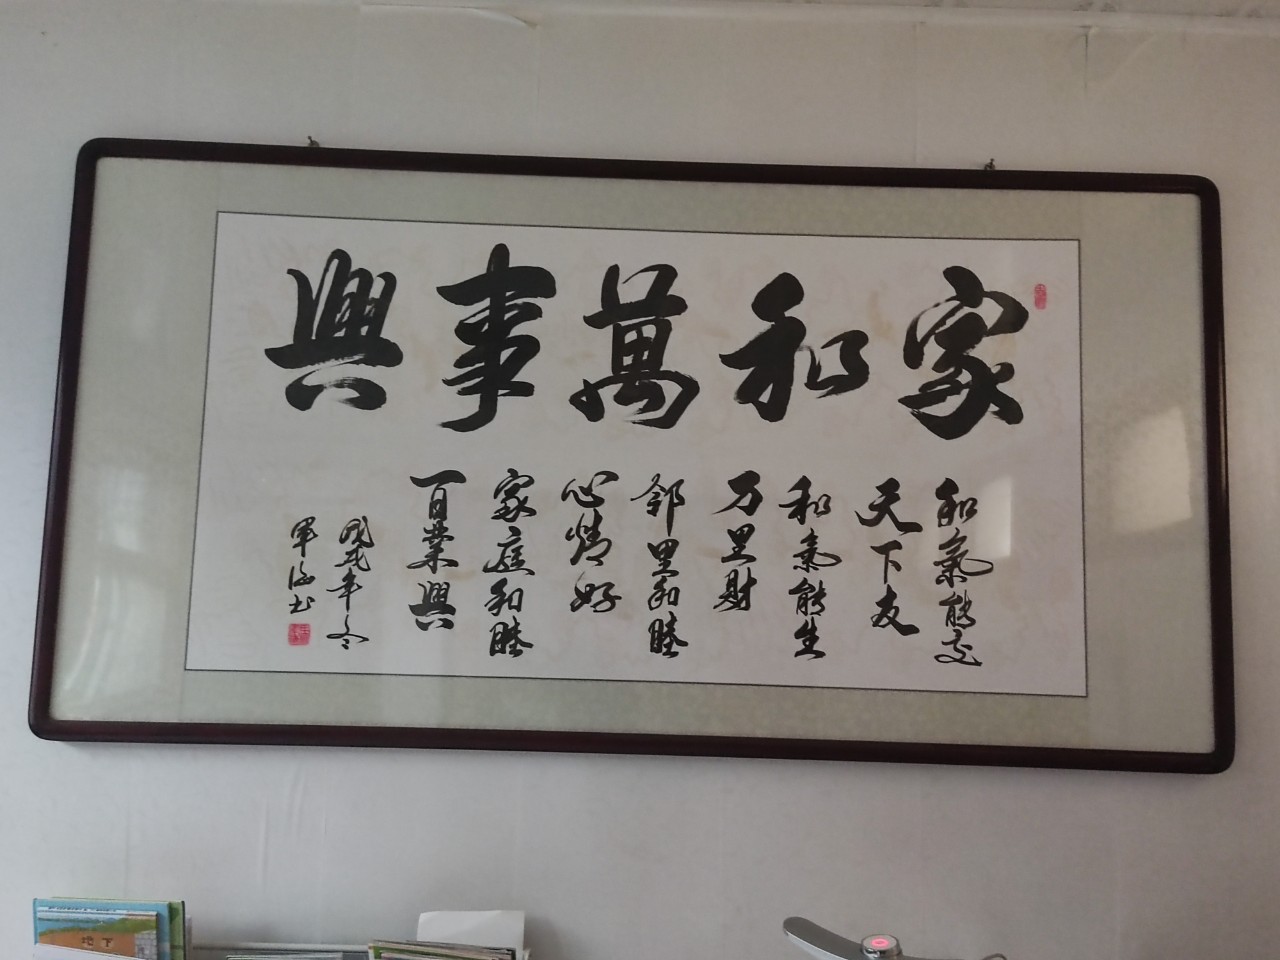 家和萬事興
和氣能交
天下友
和氣能生
万里財
邻里和睦
心情好
家庭和睦
百業興
戊戌年冬
地下